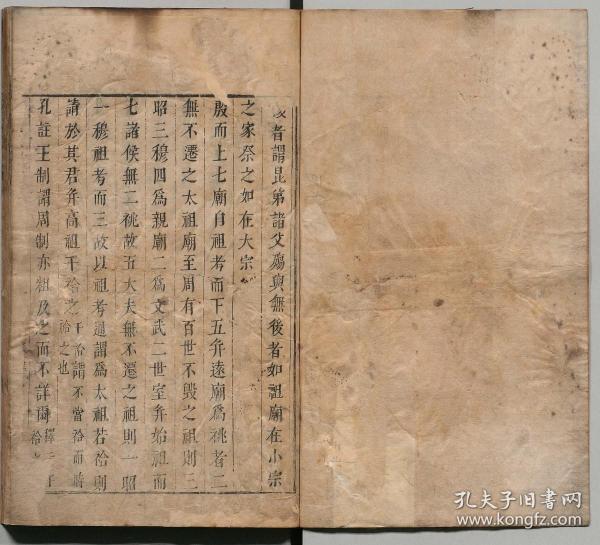 後者謂昆弟諸父殤與無後者如祖廟在小宗
之家祭之如在大宗
殷而上七廟自祖考而下五并遠廟爲祧者二
無不遷之太祖廟至周有百世不毀之祖則三
昭三穆四爲親廟二爲文武二世室并始祖而
七諸侯無二祧故五大夫無不遷之祖則一昭
一穆祖考而三故以祖考通謂爲太祖若祫則
請於其君并高祖干祫之干祫謂不當祫而特
祫之也
孔註王制謂周制亦粗及之而不詳爾
孔夫子旧书网
www.kongfz.com